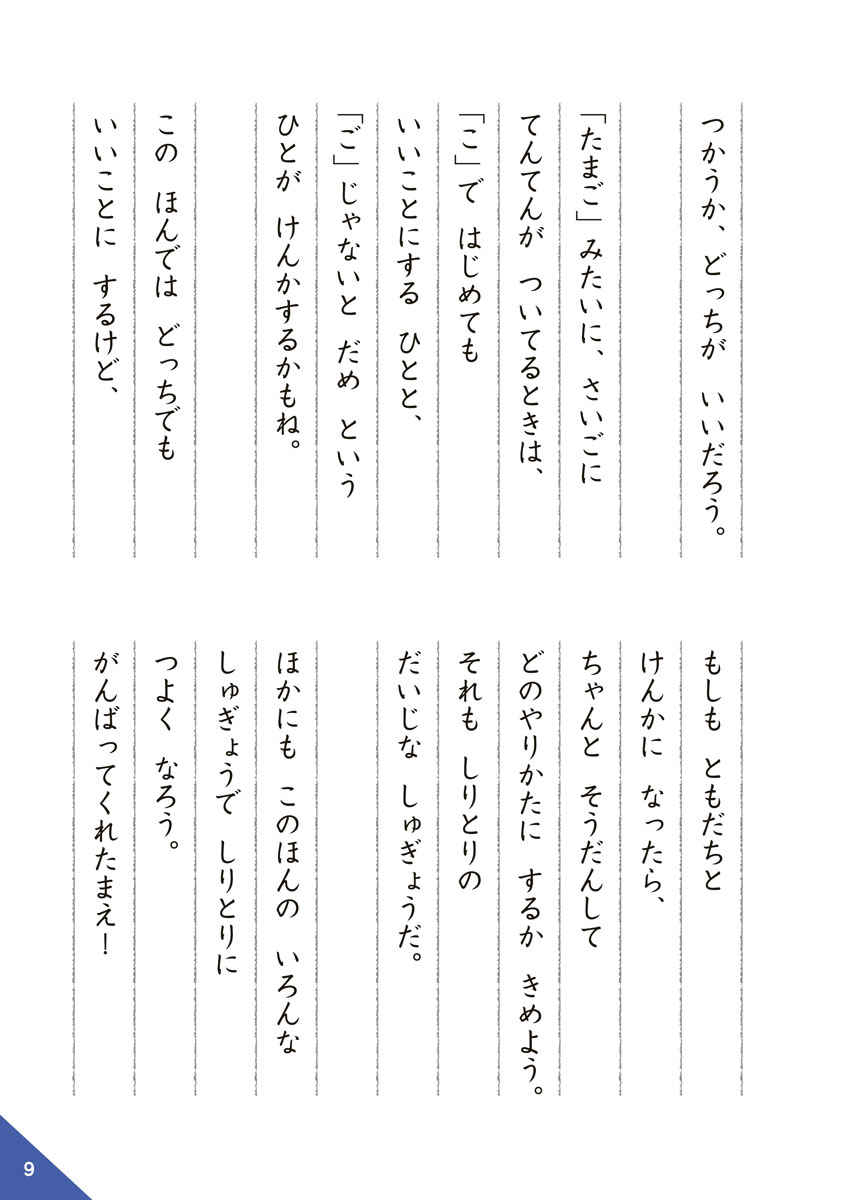 つかうか、どっちが　いいだろう。
「たまご」みたいに、さいごに
てんてんが　ついてるときは、
「こ」で　はじめても
いいことにする　ひとと、
「ご」じゃないと　だめ　という
ひとが　けんかするかもね。
この　ほんでは　どっちでも
いいことに　するけど、
もしも　ともだちと
けんかに　なったら、
ちゃんと　そうだんして
どのやりかたに　するか　きめよう。
それも　しりとりの
だいじな　しゅぎょうだ。
ほかにも　このほんの　いろんな
しゅぎょうで　しりとりに
つよく　なろう。
がんばってくれたまえ！
9